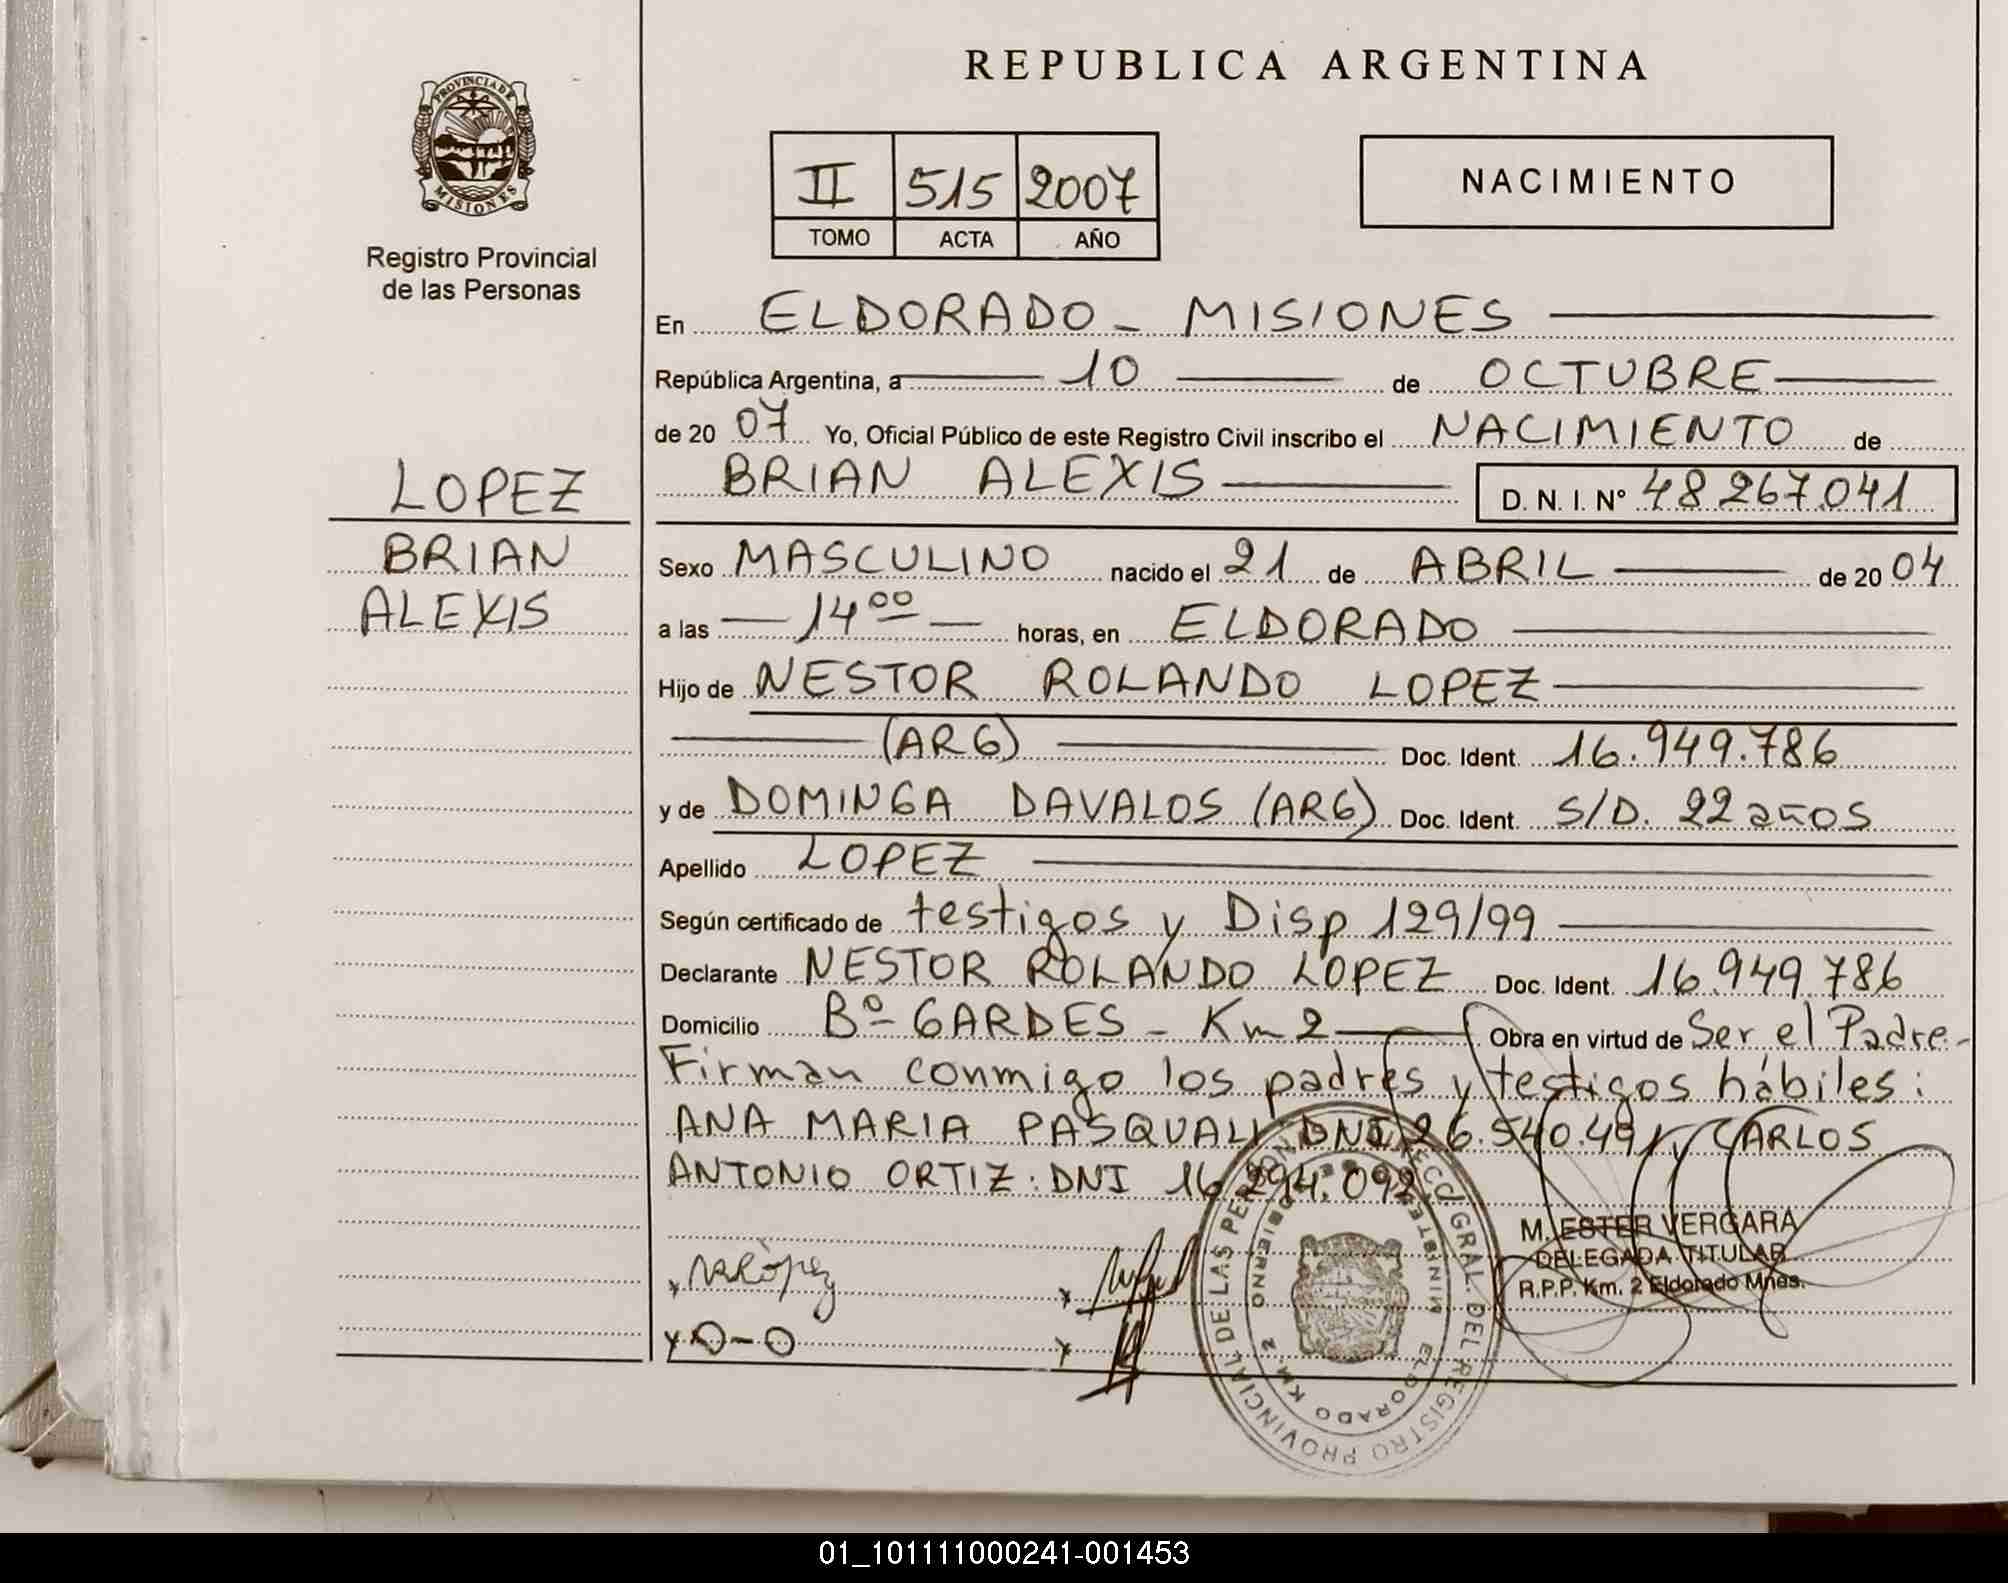 REPUBLICA ARGENTINA
PROVINCIA DE
MISIONES
Registro Provincial
de las Personas
II 515 2007
TOMO ACTA AÑO
NACIMIENTO
LOPEZ
BRIAN
ALEXIS
En ELDORADO - MISIONES
República Argentina, a 10 de OCTUBRE
de 20 07 Yo, Oficial Público de este Registro Civil inscribo el NACIMIENTO de
BRIAN ALEXIS D. N. I. Nº 48.267.041
Sexo MASCULINO nacido el 21 de ABRIL de 20 04
a las 14 00 horas, en ELDORADO
Hijo de NESTOR ROLANDO LOPEZ
(ARG) Doc. Ident. 16.949.786
y de DOMINGA DAVALOS (ARG) Doc. Ident. S/D. 22 años
Apellido LOPEZ
Según certificado de testigos y Disp 129/99
Declarante NESTOR ROLANDO LOPEZ Doc. Ident. 16.949.786
Domicilio Bº GARDES - Km 2 Obra en virtud de Ser el Padre.-
Firman conmigo los padres y testigos hábiles:
ANA MARIA PASQUALI DNI 26.540.491 y CARLOS
ANTONIO ORTIZ: DNI 16.294.092
x NRLópez x
x O-O x
M. ESTER VERGARA
DELEGADA TITULAR
R.P.P. Km. 2 Eldorado Mnes.
DIRECC. GRAL. DEL REGISTRO PROVINCIAL DE LAS PERSONAS
MINISTERIO DE GOBIERNO
ELDORADO KM. 2
01_101111000241-001453